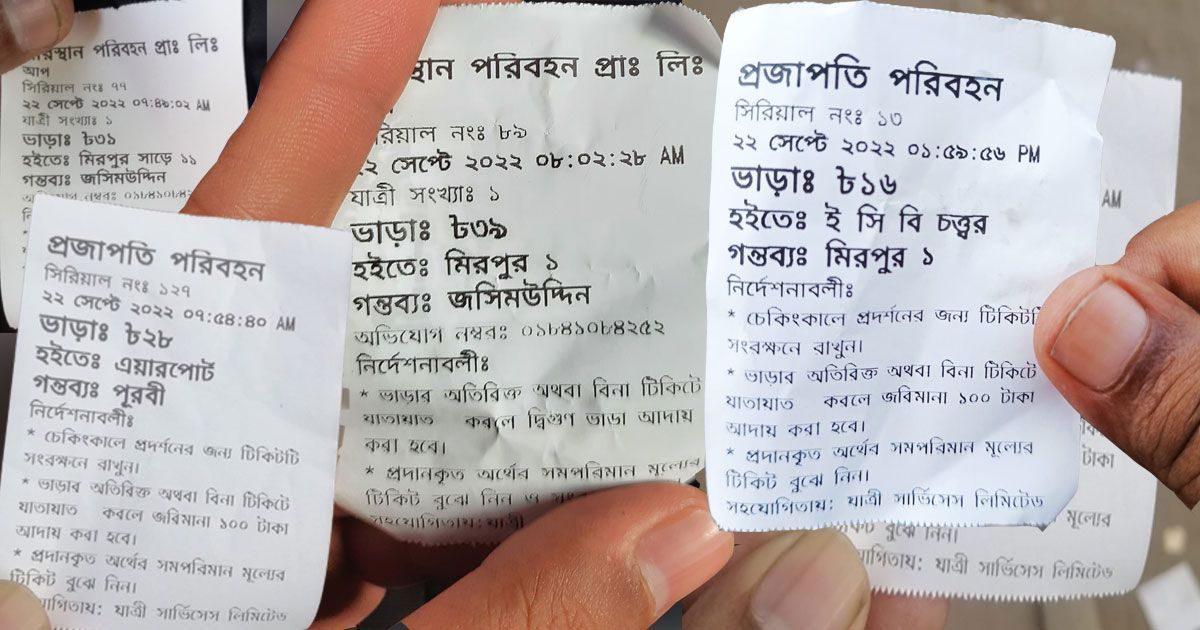 পরিবহন প্রাঃ লিঃ
আপ
সিরিয়াল নংঃ ৭৭
২২ সেপ্টে ২০২২ ০৭:৪৯:০২ AM
যাত্রী সংখ্যাঃ ১
ভাড়াঃ ৳৩১
হইতেঃ মিরপুর সাড়ে ১১
গন্তব্যঃ জসিমউদ্দিন
প্রজাপতি পরিবহন
সিরিয়াল নংঃ ১২৭
২২ সেপ্টে ২০২২ ০৭:৫৪:৪০ AM
ভাড়াঃ ৳২৮
হইতেঃ এয়ারপোর্ট
গন্তব্যঃ পূরবী
নির্দেশনাবলীঃ
* চেকিংকালে প্রদর্শনের জন্য টিকিটটি
সংরক্ষনে রাখুন।
* ভাড়ার অতিরিক্ত অথবা বিনা টিকিটে
যাতায়াত করলে জরিমানা ১০০ টাকা
আদায় করা হবে।
* প্রদানকৃত অর্থের সমপরিমান মূল্যের
টিকিট বুঝে নিন।
যাত্রী সার্ভিসেস লিমিটেড
পরিবহন প্রাঃ লিঃ
নংঃ ৮৯
২২ সেপ্টে ২০২২ ০৮:০২:২৮ AM
যাত্রী সংখ্যাঃ ১
ভাড়াঃ ৳৩৯
হইতেঃ মিরপুর ১
গন্তব্যঃ জসিমউদ্দিন
অভিযোগ নম্বরঃ ০১৮৪১০৮৪২৫২
নির্দেশনাবলীঃ
* ভাড়ার অতিরিক্ত অথবা বিনা টিকিটে
যাতায়াত করলে দ্বিগুণ ভাড়া আদায়
করা হবে।
* প্রদানকৃত অর্থের সমপরিমান মূল্যের
টিকিট বুঝে নিন ও
সহযোগিতায়: যাত্রী
প্রজাপতি পরিবহন
সিরিয়াল নংঃ ১৩
২২ সেপ্টে ২০২২ ০১:৫৯:৫৬ PM
ভাড়াঃ ৳১৬
হইতেঃ ই সি বি চত্ত্বর
গন্তব্যঃ মিরপুর ১
নির্দেশনাবলীঃ
* চেকিংকালে প্রদর্শনের জন্য টিকিটটি
সংরক্ষনে রাখুন।
* ভাড়ার অতিরিক্ত অথবা বিনা টিকিটে
যাতায়াত করলে জরিমানা ১০০ টাকা
আদায় করা হবে।
* প্রদানকৃত অর্থের সমপরিমান মূল্যের
টিকিট বুঝে নিন।
সহযোগিতায়: যাত্রী সার্ভিসেস লিমিটেড
AM
টাকা
মূল্যের
বুঝে নিন।
যাত্রী সার্ভিসেস লিমিটেড